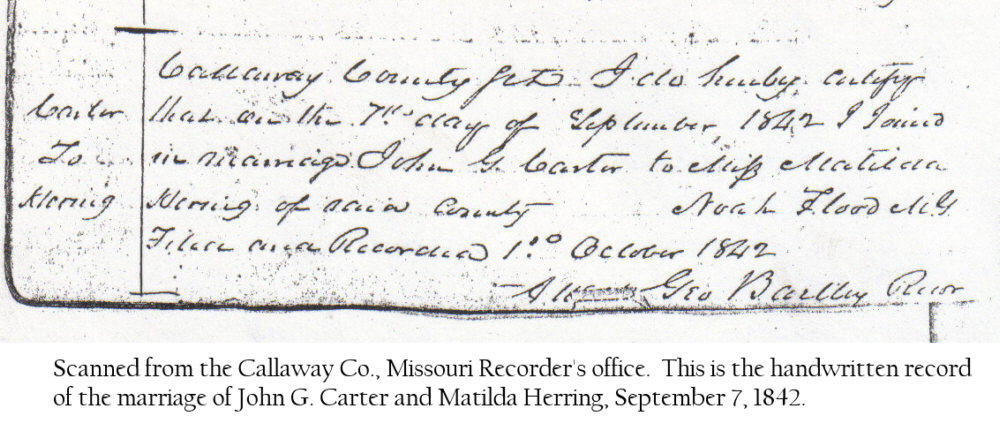 Callaway County Sct. I do hereby certify
Carter that on the 7th day of September 1842 I Joined
To in marriage John G. Carter to Miss Matilda
Hering Hering of said County Noah Flood M.G.
Filed and Recorded 1st October 1842
Geo Bartley Recor
Scanned from the Callaway Co., Missouri Recorder's office. This is the handwritten record
of the marriage of John G. Carter and Matilda Herring, September 7, 1842.